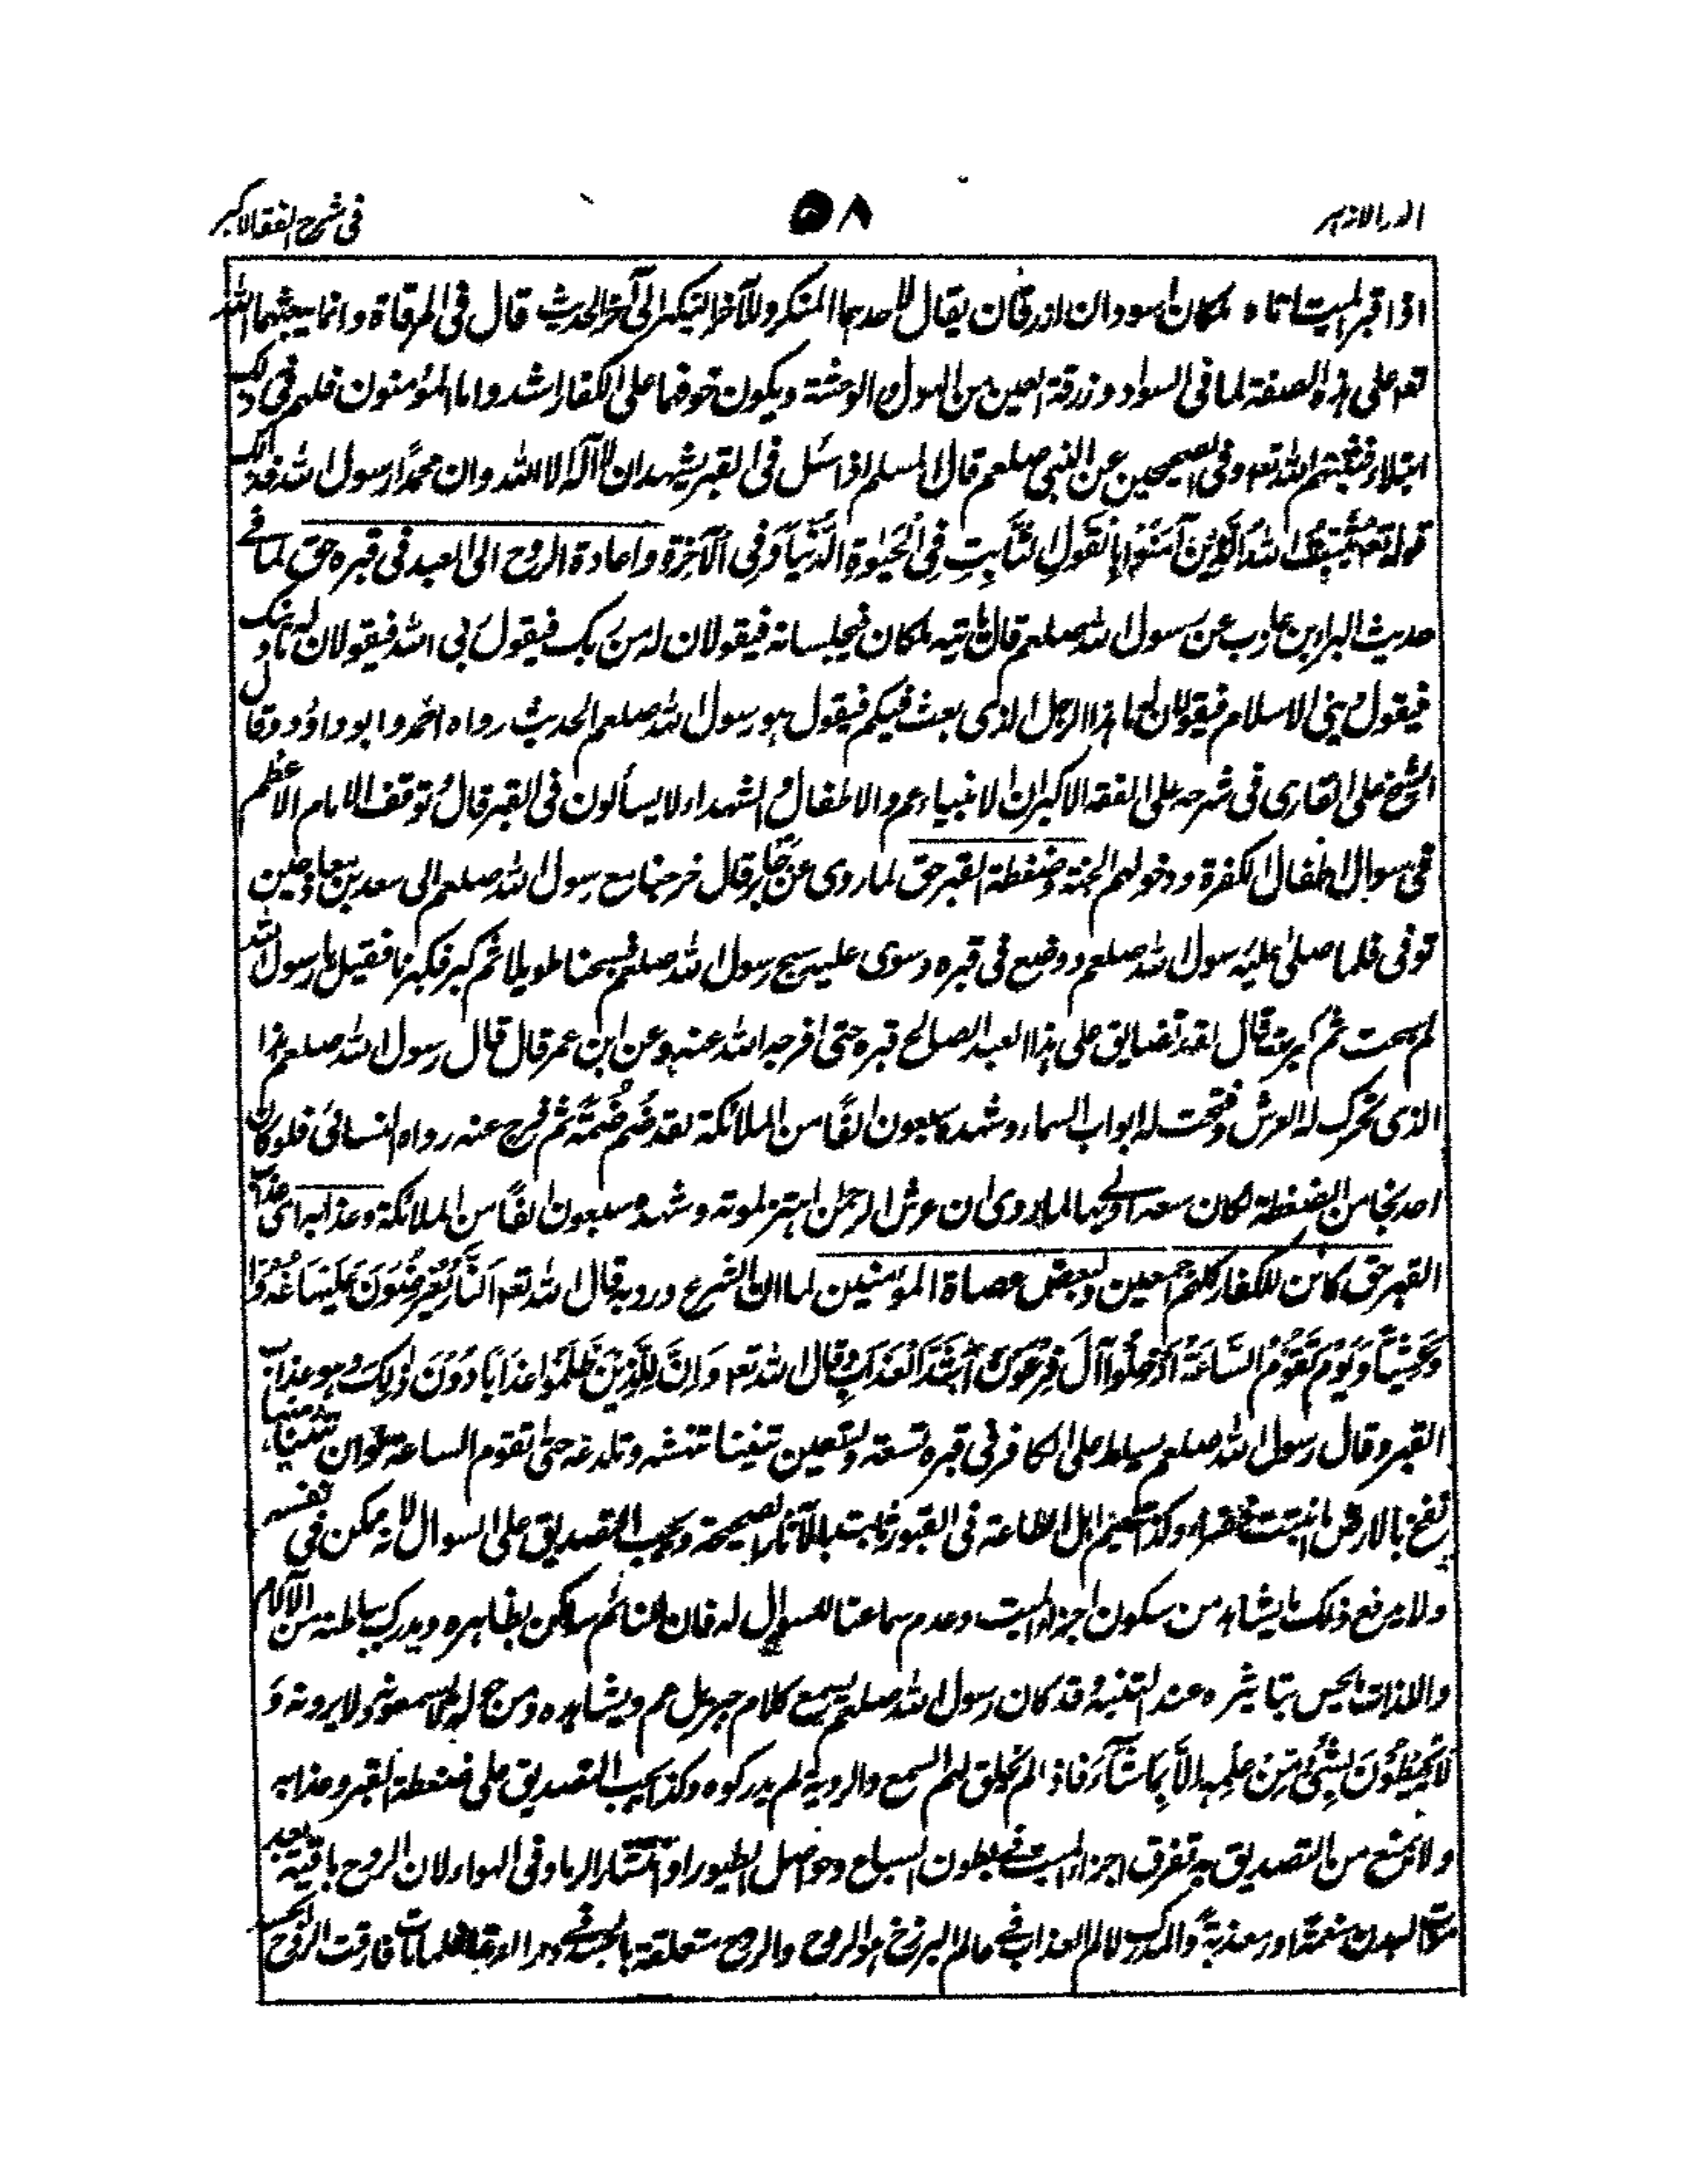 الدر الازہر ٥٨ فی شرح الفقہ الاکبر
اذا قبر المیت اتاہ ملکان اسودان ازرقان یقال لاحدھما المنکر وللآخر النکیر الی آخر الحدیث قال فی المرقاۃ وانما یبعثہما اللہ
تعہ علی ہذہ الصفۃ لما فی السواد وزرقۃ العین من الہول والوحشۃ ویکون خوفہا علی الکفار اشد واما المؤمنون فلہم فی ذلک
ابتلاء فیثبتہم اللہ تعہ وفی الصحیحین عن النبی صلعم قال المسلم اذا سئل فی القبر یشہد ان لا آلہ الا اللہ وان محمدًا رسول اللہ فذلک
قولہ تعہ یُثَبِّتُ اللہُ الَّذِیْنَ آمَنُوْا بِالْقَوْلِ الثَّابِتِ فِی الْحَیٰوۃِ الدُّنْیَا وَفِی الْآخِرَۃِ واعادۃ الروح الی العبد فی قبرہ حق لما فے
حدیث البراء بن عازب عن رسول اللہ صلعم قال یاتیہ ملکان فیجلسانہ فیقولان لہ من ربک فیقول ربی اللہ فیقولان لہ ما دینک
فیقول دینی الاسلام فیقولان لہ ما ہذا الرجل الذی بعث فیکم فیقول ہو رسول اللہ صلعم الحدیث رواہ احمد وابوداؤد وقال
الشیخ علی القاری فی شرحہ علی الفقہ الاکبر ان الانبیاء عم والاطفال والشہداء لا یسألون فی القبر قال وتوقف الامام الاعظم
فی سوال اطفال الکفرۃ ودخولہم الجنۃ وضغطۃ القبر حق لما روی عن جابر قال خرجنا مع رسول اللہ صلعم الی سعد بن معاذ حین
توفی فلما صلی علیہ رسول اللہ صلعم ووضع فی قبرہ وسوی علیہ سبح رسول اللہ صلعم فسبحنا طویلا ثم کبر فکبرنا فقیل یا رسول اللہ
لم سبحت ثم کبرت قال لقد تضایق علی ہذا العبد الصالح قبرہ حتی افرجہ اللہ عنہ وعن ابن عمر قال قال رسول اللہ صلعم ہذا
الذی تحرک لہ العرش وفتحت لہ ابواب السماء وشہدہ سبعون الفًا من الملائکۃ لقد ضُم ضُمۃً ثم فرج عنہ رواہ النسائی فلو کان
احد نجا من الضغطۃ لکان سعد لما روی ان عرش الرحمٰن اہتز لموتہ وشہدہ سبعون الفًا من الملائکۃ وعذابہ ای عذاب
القبر حق کائن للکفار کلہم اجمعین ولبعض عصاۃ المؤمنین لما ان الشرع ورد بہ قال اللہ تعہ اَلنَّارُ یُعْرَضُوْنَ عَلَیْہَا غُدُوًّا
وَعَشِیًّا وَیَوْمَ تَقُوْمُ السَّاعَۃُ اَدْخِلُوْا آلَ فِرْعَوْنَ اَشَدَّ الْعَذَابِ وقال اللہ تعہ وَاِنَّ لِلَّذِیْنَ ظَلَمُوْا عَذَابًا دُوْنَ ذٰلِکَ ہو عذاب
القبر وقال رسول اللہ صلعم یسلط علی الکافر فی قبرہ تسعۃ وتسعین تنینا تنہشہ وتلدغہ حتی تقوم الساعۃ لو ان تنینا منہا
نفخ بالارض ما انبتت خضراء وکذا تنعیم اہل الطاعۃ فی القبور ثابت بالآثار الصحیحۃ ویجب التصدیق علی السوال لانہ ممکن فی نفسہ
ولا یدفع ذلک ما یشاہد من سکون اجزاء المیت وعدم سماعنا للسوال لہ فان النائم ساکن بظاہرہ ویدرک بباطنہ من الآلام
واللذات ما یحس بتاثیرہ عند التنبہ وقد کان رسول اللہ صلعم یسمع کلام جبرئیل عم ویشاہدہ ومن حولہ لا یسمعونہ ولا یرونہ وَ
لَا یُحِیْطُوْنَ بِشَیْءٍ مِّنْ عِلْمِہِ اِلَّا بِمَا شَآءَ فاذا لم یخلق لہم السمع والرویۃ لم یدرکوہ وکذا یجب التصدیق علی ضغطۃ القبر وعذابہ
ولا یمنع من التصدیق بہ تفرق اجزاء المیت فے بطون السباع وحواصل الطیور او انتشار الرماد فی الہواء لان الروح باقیۃ بعد
البدن منعمۃ او معذبۃ والمدرک لالم العذاب فے عالم البرزخ ہو الروح والروح متعلقۃ بالجسد فے فارقت الروح